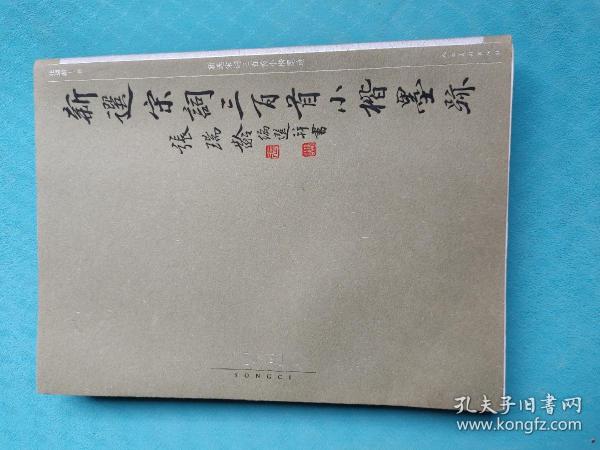 新選宋詞三百首小楷墨跡
張瑞齡編選并書
新选宋词三百首小楷墨迹
SONGCI
孔夫子旧书网
www.kongfz.com